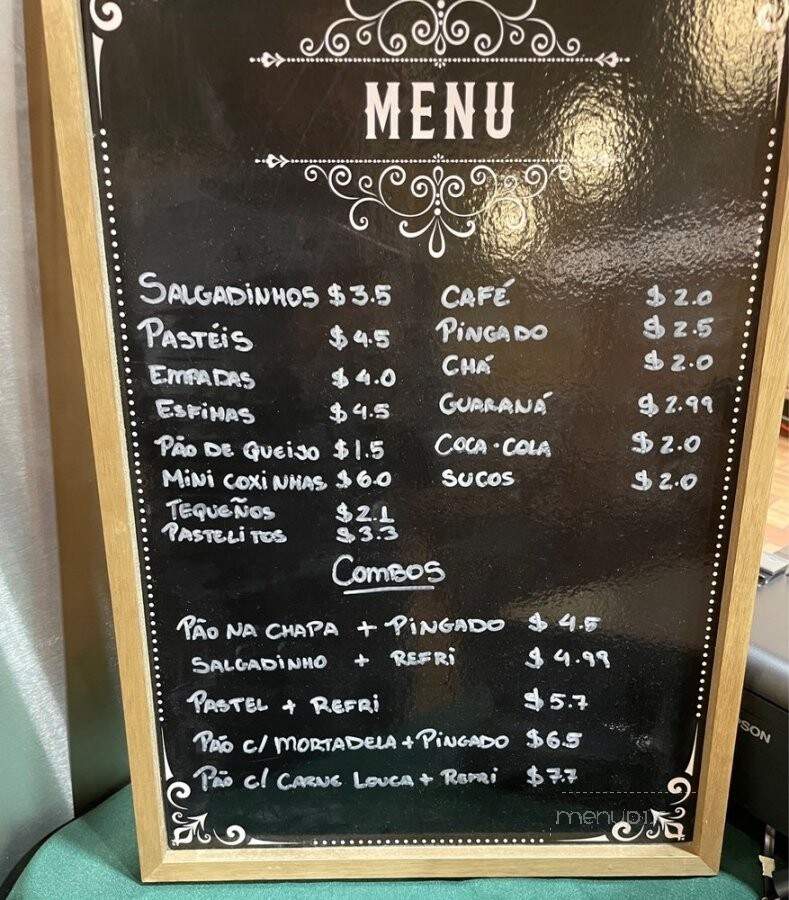 MENU
SALGADINHOS $3.5
PASTÉIS $4.5
EMPADAS $4.0
ESFIHAS $4.5
PÃO DE QUEIJO $1.5
MINI COXINHAS $6.0
TEQUEÑOS $2.1
PASTELITOS $3.3
CAFÉ $2.0
PINGADO $2.5
CHÁ $2.0
GUARANÁ $2.99
COCA-COLA $2.0
SUCOS $2.0
COMBOS
PÃO NA CHAPA + PINGADO $4.5
SALGADINHO + REFRI $4.99
PASTEL + REFRI $5.7
PÃO C/ MORTADELA + PINGADO $6.5
PÃO C/ CARNE LOUCA + REFRI $7.7